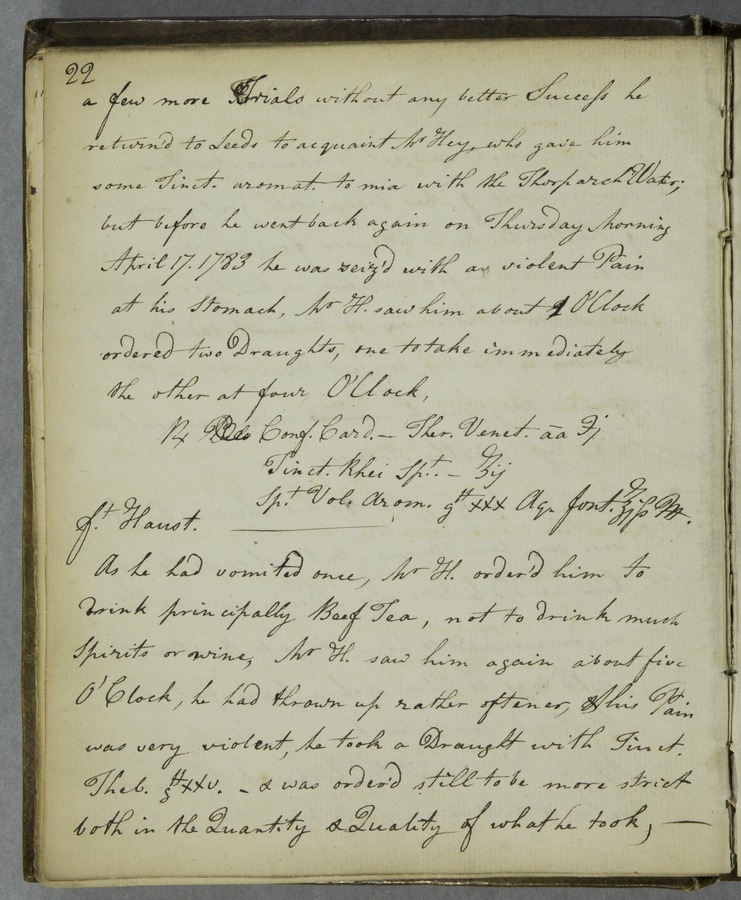 22
a few more Trials without any better Success he
return'd to Leeds to acquaint Mr Hey, who gave him
some Tinct. aromat. to mix with the Thorparch Water;
but before he went back again on Thursday Morning
April 17. 1783 he was seiz'd with a violent Pain
at his Stomach, Mr H. saw him about 1 O'Clock
ordered two Draughts, one to take immediately
the other at four O'Clock,
℞ Conf. Card. — Ther. Venet. āa ℈j
Tinct. Rhei Spt. — ʒij
Spt Vol. Arom. gtt xxx Aq. font. M.
ft. Haust.
As he had vomited once, Mr H. order'd him to
Drink principally Beef Tea, not to drink much
Spirits or wine, Mr H. saw him again about five
O'Clock, he had thrown up rather oftener, & his Pain
was very violent, he took a Draught with Tinct.
Theb. gtt xxv. — & was order'd still to be more strict
both in the Quantity & Quality of what he took, —